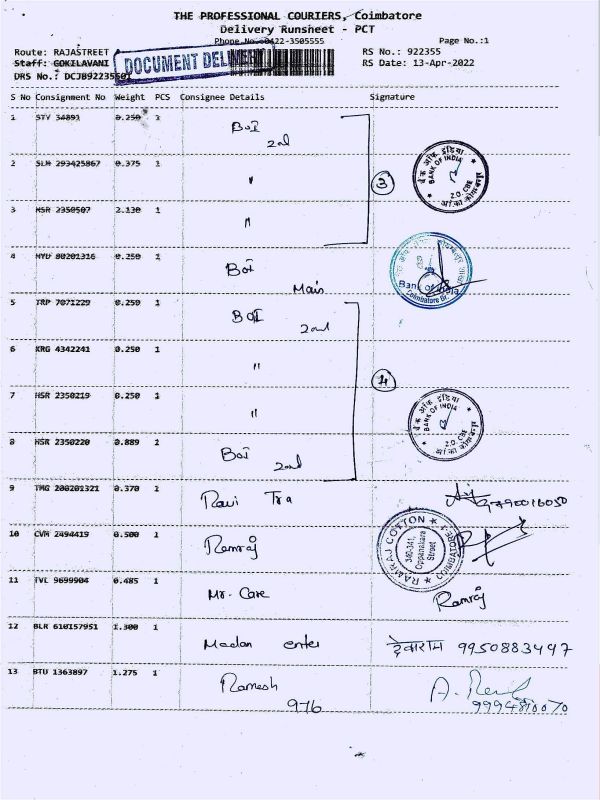 THE PROFESSIONAL COURIERS, Coimbatore
Delivery Runsheet - PCT
Phone No. 0422-3505555 Page No.:1
Route: RAJASTREET RS No.: 922355
Staff: GOKILAVANI DOCUMENT RS Date: 13-Apr-2022
DRS No.:
S No Consignment No Weight PCS Consignee Details Signature
1 STV 34891 0.250 1 BOI
2nd
2 SLM 293425867 0.375 1 "
3 HSR 2350507 2.130 1 "
3
बैंक ऑफ इंडिया
BANK OF INDIA
Z.O. CBE
4 HYD 80201316 0.250 1 BOI
Main
Bank of India
Coimbatore Br.
5 TRP 7071229 0.250 1 BOI
2nd
6 KRG 4342241 0.250 1 "
7 HSR 2350219 0.250 1 "
8 HSR 2350220 0.889 1 BOI
2nd
4
बैंक ऑफ इंडिया
BANK OF INDIA
Z.O. CBE
9 TMG 200201321 0.370 1 Ravi Tra
10 CVM 2494419 0.500 1 Ramraj
RAMRAJ COTTON
340-341,
Oppanakara
Street
COIMBATORE
11 TVL 9699904 0.485 1 Mr. Care Ramraj
12 BLR 610157951 1.300 1 Madan enter देवाराम 9950883497
13 BTU 1363897 1.275 1 Ramesh
976 9994810070